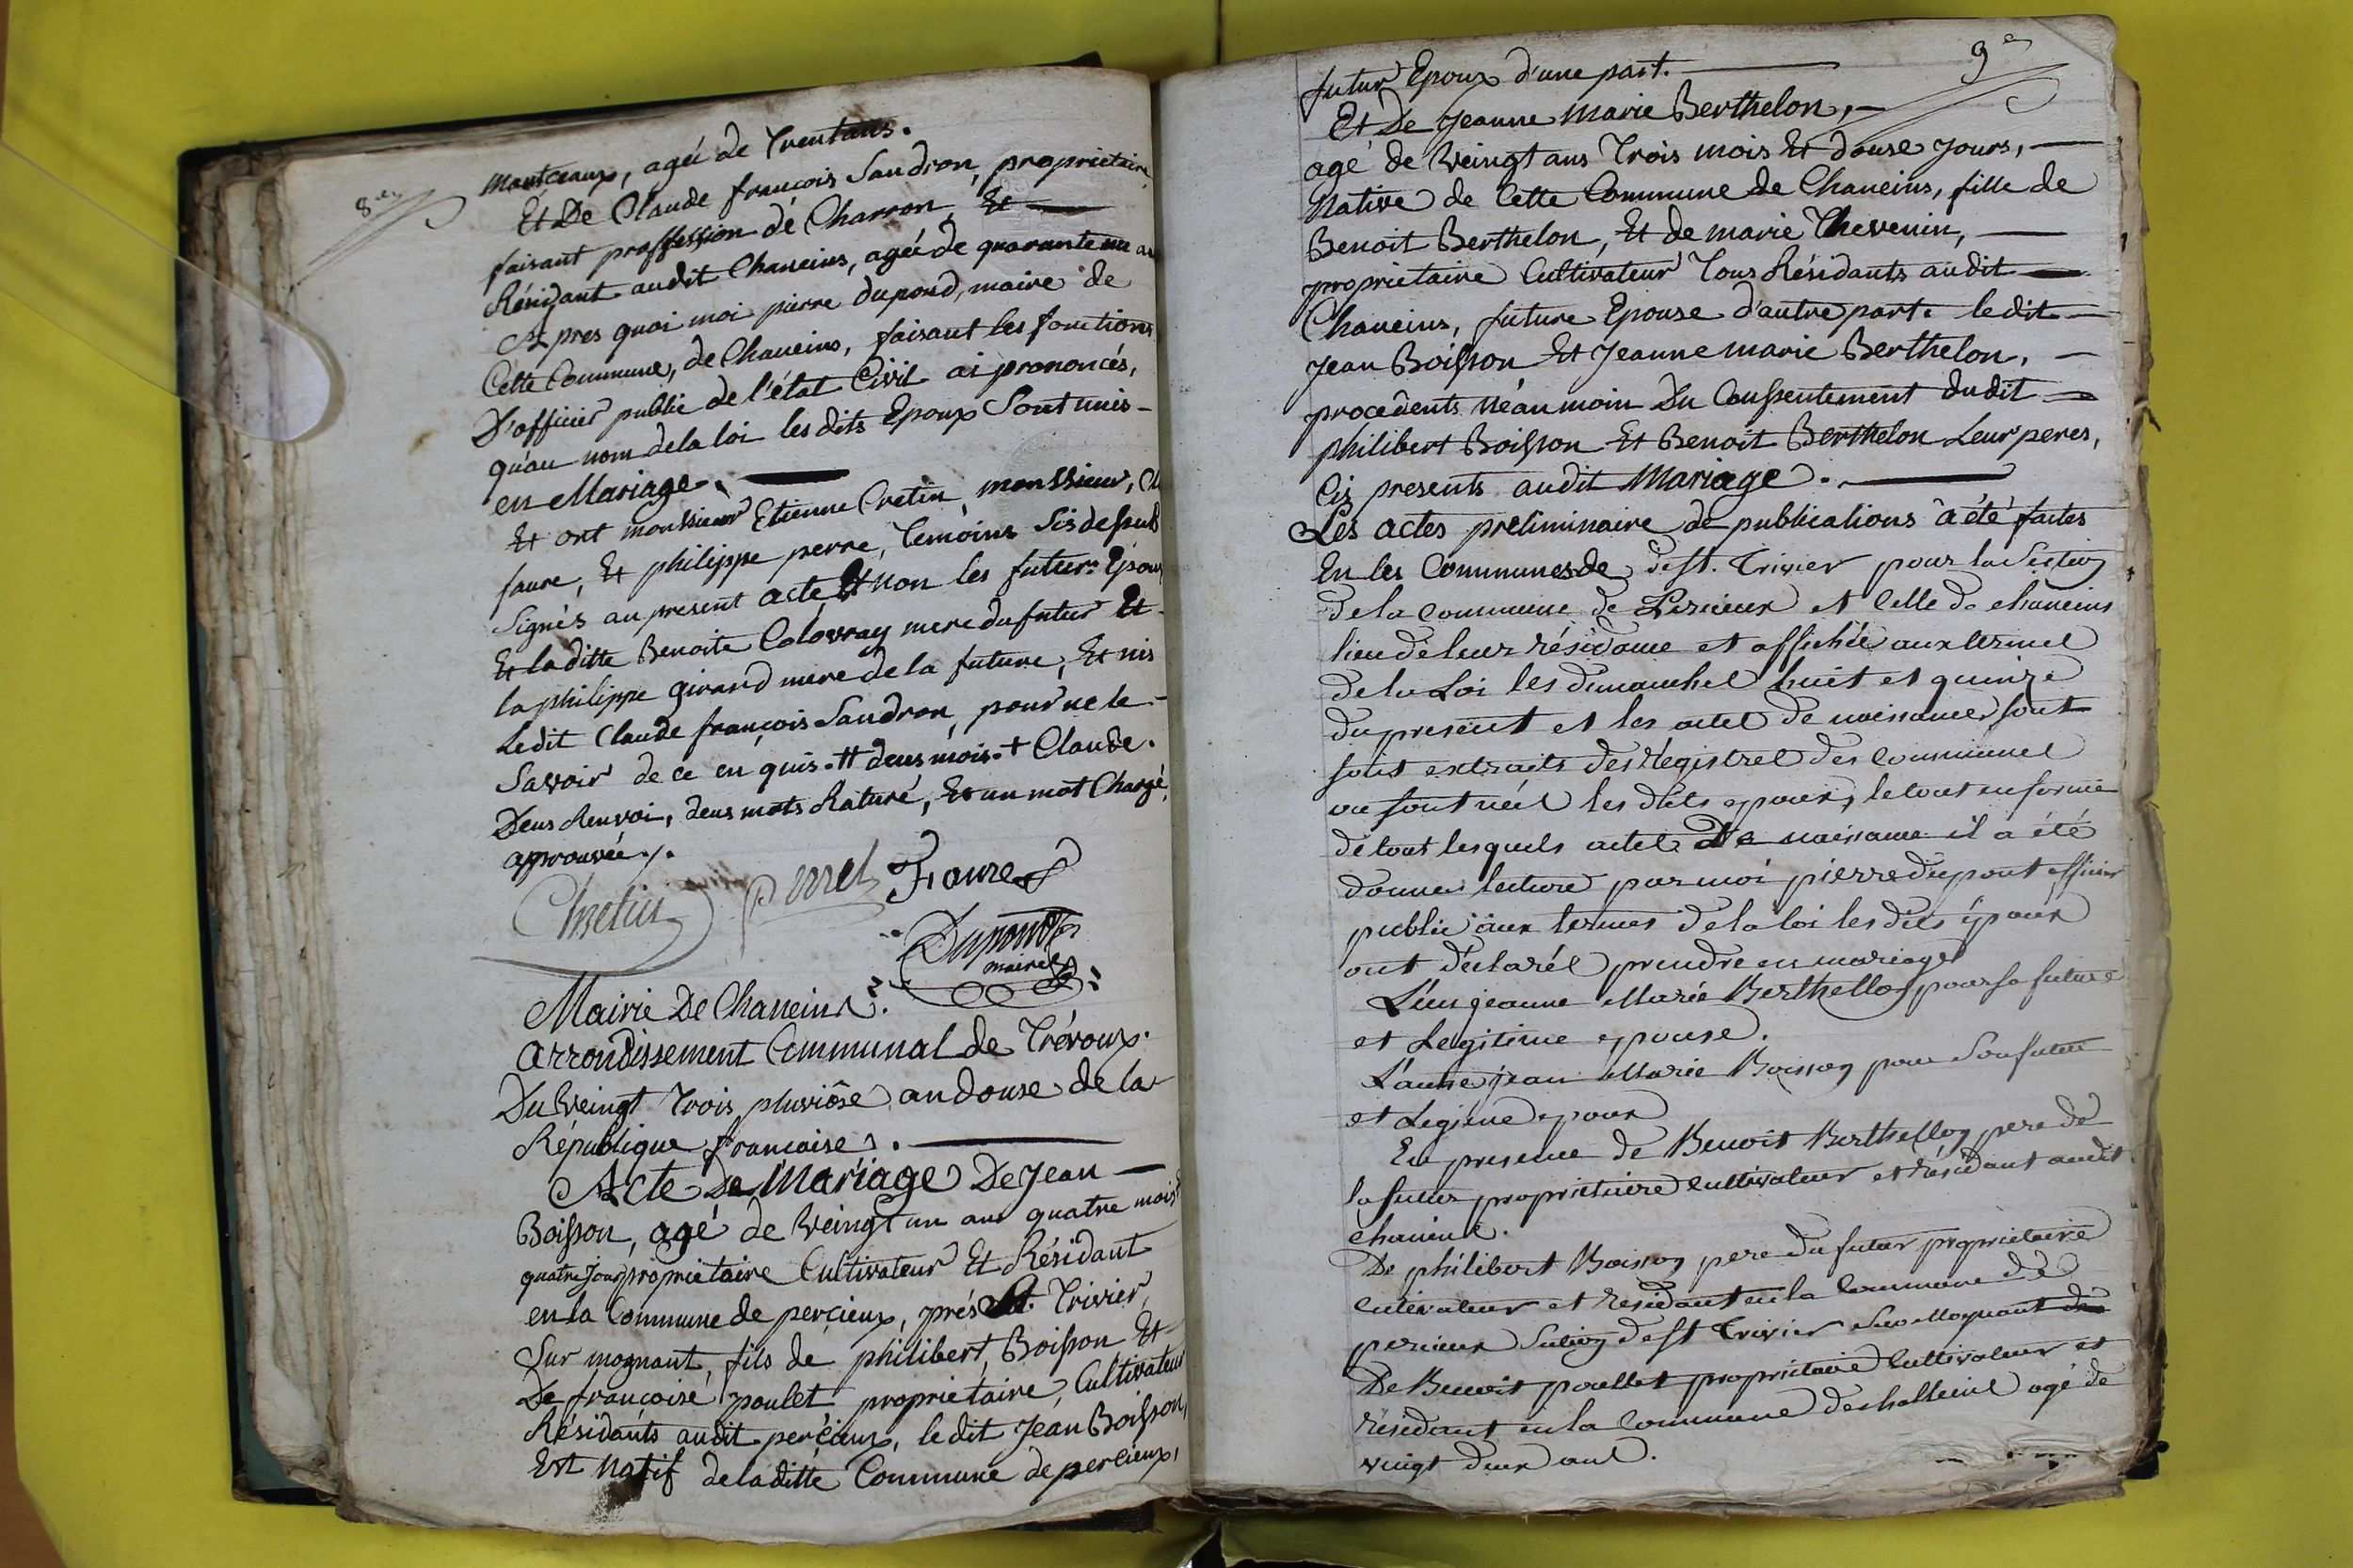 8.e
Montceaux, agée de Trentans.
Et De Claude françois Sandron, proprietaire,
faisant proffession de Charron, Et
Résidant audit Chaneins, agée de quarante un an
Apres quoi moi pierre dupond, maire de
Cette Commune, de Chaneins, faisant les fonctions
D'officier public de l'état Civil ai prononcés,
qu'au nom de la loi les dits Epoux Sont unis
en Mariage.
Et ont monssieur Etienne Cretin, monssieur,
faure, Et philippe perre, Temoins
Signés au present acte, Et non les futur Epoux
Et la ditte Benoite Colovray mere du futur Et
la philippe girand mere de la future, Et
Ledit Claude françois Sandron, pour ne le
Savoir de ce en quis. ++ deus mois. + Claude.
Deus Renvoi, deus mots Raturé, Et un mot Chargé,
approuvée ./.
Chretin perret Faure
Dupond
maire
Mairie De Chaneins.
Arrondissement Communal de Trévoux.
Du Veingt Trois pluviôse an douse de la
République francaise.
Acte De Mariage De Jean
Boisson, agé de Veingt un ans quatre mois
quatre jours proprietaire Cultivateur Et Résidant
en la Commune de percieux, prés St. Trivier,
Sur mognant, fils de philibert, Boisson Et
De françoise poulet proprietaire, Cultivateur
Résidants audit percieux, le dit Jean Boisson,
Est Natif de la ditte Commune de percieux,
9e
futur Epoux d'une part.
Et De Jeanne Marie Berthelon,
agé de Veingt ans Trois mois Et douse jours,
Native de Cette Commune de Chaneins, fille de
Benoit Berthelon, Et de marie Thevenin,
proprietaire Cultivateur Tous Résidants audit
Chaneins, future Epouse d'autre part. le dit
Jean Boisson Et Jeanne marie Berthelon,
procedents néanmoin Du Conssentement dudit
philibert Boisson Et Benoit Berthelon Leur peres,
Cis presents audit Mariage.
Les actes preliminaire de publications a été faites
En les Communes de de st. Trivier pour la Section
de la commune de Percieux et Celle de chaneins
lieu de leur résidance et affichée aux termes
de la Loi les dimanches huit et quinze
du present et les actes de naissance sont
sont extraits des Régistres des communes
ou sont nées les dits epoux, le tout en forme
de tout lesquels actes De naissance il a été
donner lecture par moi pierre dupont officier
public aux termes de la loi les dits époux
ont déclarés prendre en mariage
L'un jeanne Marie Berthellon pour sa future
et Legitime epouse.
L'autre jean Marie Boisson pour Son futur
et Legime epoux
En presence de Benoit Berthellon pere de
la future proprietaire cultivateur et résidant audit
chaneins.
De philibert Boisson pere du futur proprietaire
cultivateur et residant en la Commune de
percieux Section de st Trivier Sur Mognant
De Benoit poullet proprietaire Cultivateur et
résidant en la Commune de challeins agé de
vingt deux ans.